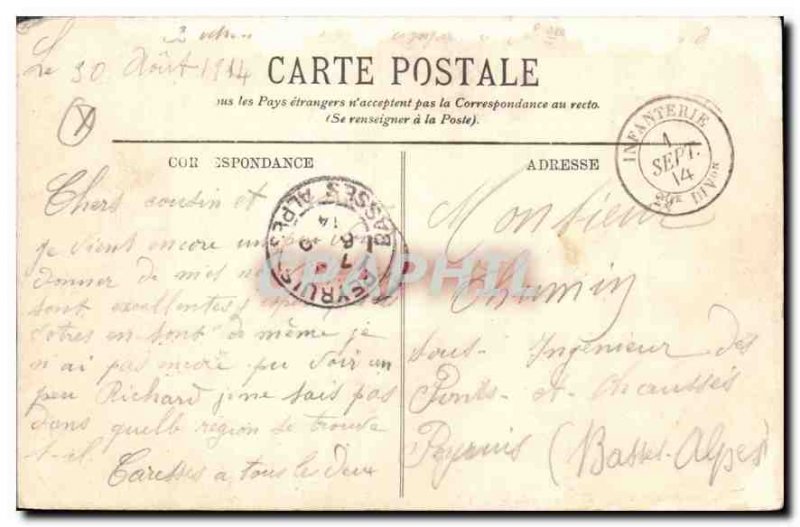 Le 30 Août 1914
CARTE POSTALE
us les Pays étrangers n'acceptent pas la Correspondance au recto.
(Se renseigner à la Poste).
INFANTERIE
1
SEPT.
14
DIVon
COR ESPONDANCE
ADRESSE
Chers cousin et
je vient encore un
donner de mes
sont excellentes
votres en sont de même je
n'ai pas encore pu voir un
peu Richard je ne sais pas
dans quelle région se trouve
t-il
Caresses a tous les deux
PEYRUIS
BASSES ALPES
14
CPAPHIL
Monsieur
Chemin
Sous-Ingénieur des
Ponts-et-Chaussés
Peyruis (Basses-Alpes)